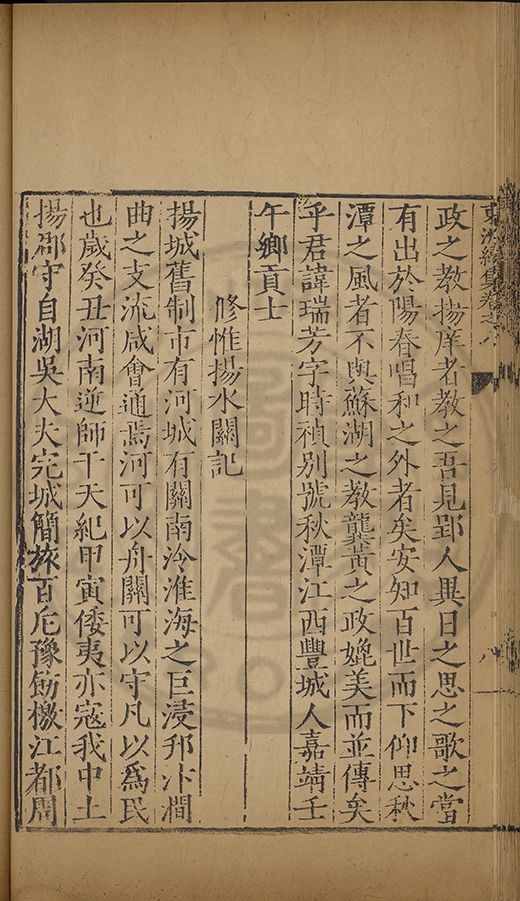 東洲續集卷之八
八
政之教揚庠者教之吾見郢人異日之思之歌之當
有出於陽春唱和之外者矣安知百世而下仰思秋
潭之風者不與蘇湖之教龔黃之政媲美而並傳矣
乎君諱瑞芳字時禎別號秋潭江西豐城人嘉靖壬
午鄉貢士
修惟揚水關記
揚城舊制市有河城有關南泠淮海之巨浸邗汴澗
曲之支流咸會通焉河可以舟關可以守凡以為民
也歲癸丑河南逆師干天紀甲寅倭夷亦寇我中土
揚郡守自湖吳大夫完城簡旅百凡豫飭檄江都周